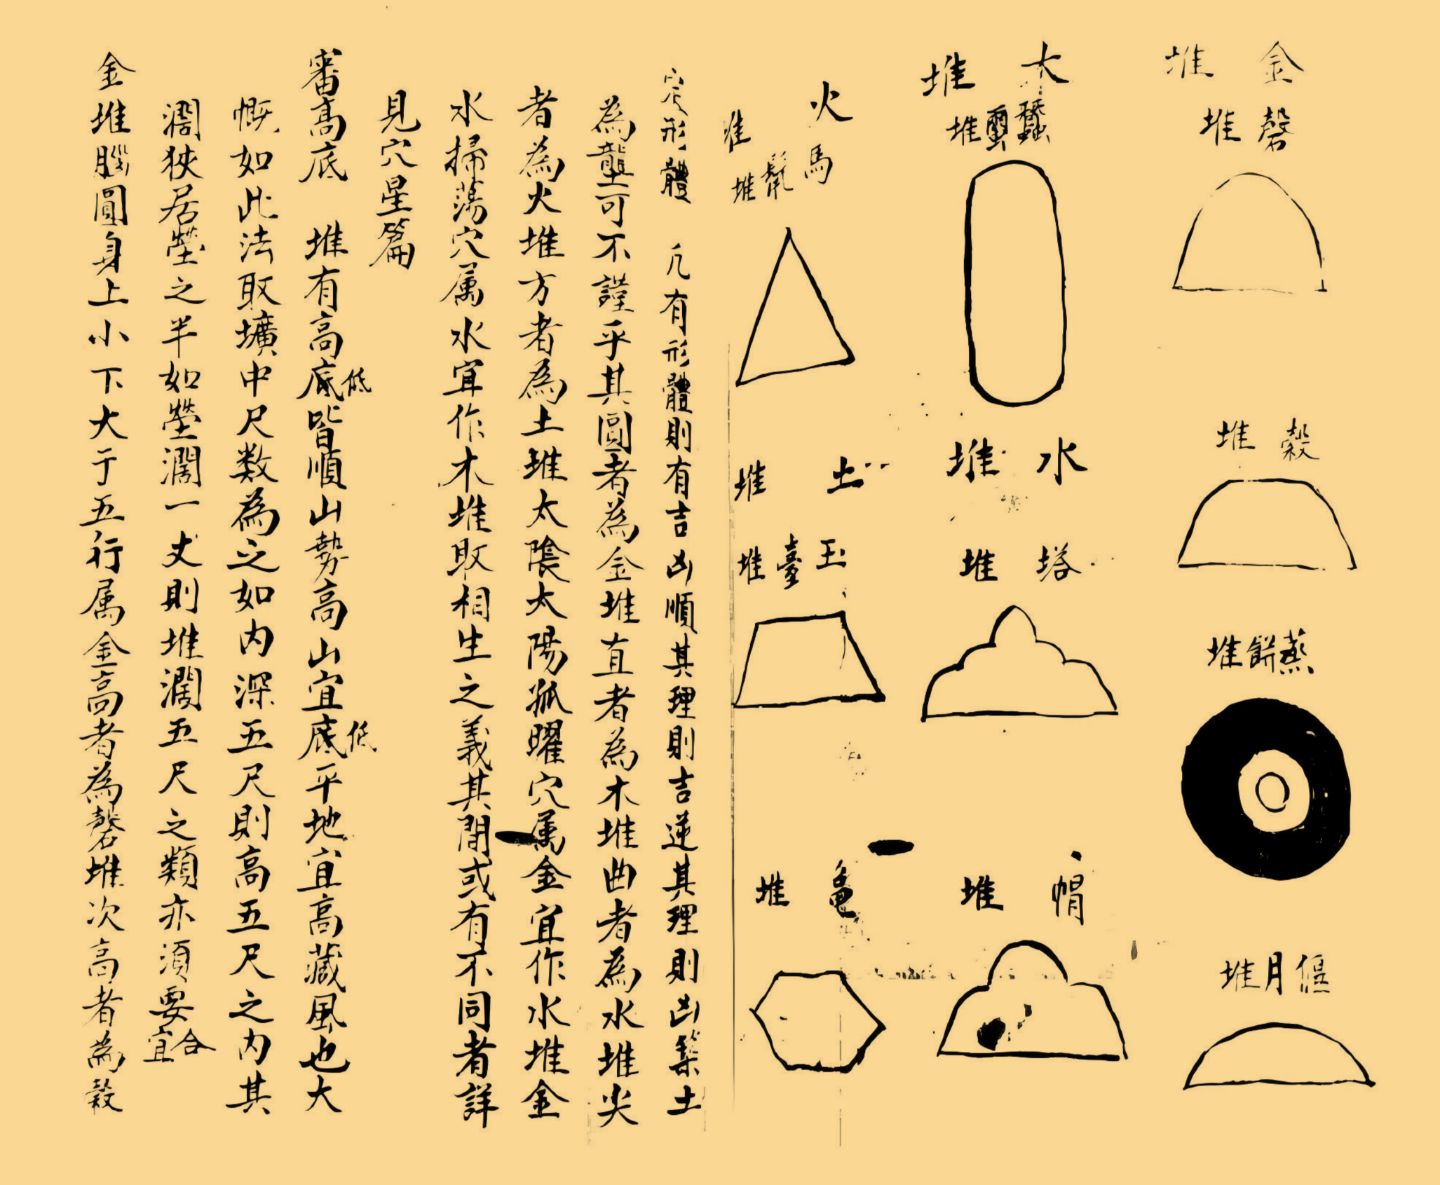 金堆
磬堆
穀堆
蒸餅堆
偃月堆
木堆
蠶繭堆
水堆
塔堆
帽堆
火堆
馬鬣堆
土堆
玉臺堆
龜堆
定形體　凡有形體則有吉凶順其理則吉逆其理則凶築土
為壟可不謹乎其圓者為金堆直者為木堆曲者為水堆尖
者為火堆方者為土堆太陰太陽孤曜穴属金宜作水堆金
水掃蕩穴属水宜作木堆取相生之義其間或有不同者詳
見穴星篇
審高底　堆有高底低皆順山勢高山宜底低平地宜高藏風也大
慨如此法取壙中尺数為之如内深五尺則高五尺之内其
濶狹居塋之半如塋濶一丈則堆濶五尺之類亦須要合宜
金堆腦圓身上小下大于五行属金高者為磬堆次高者為穀